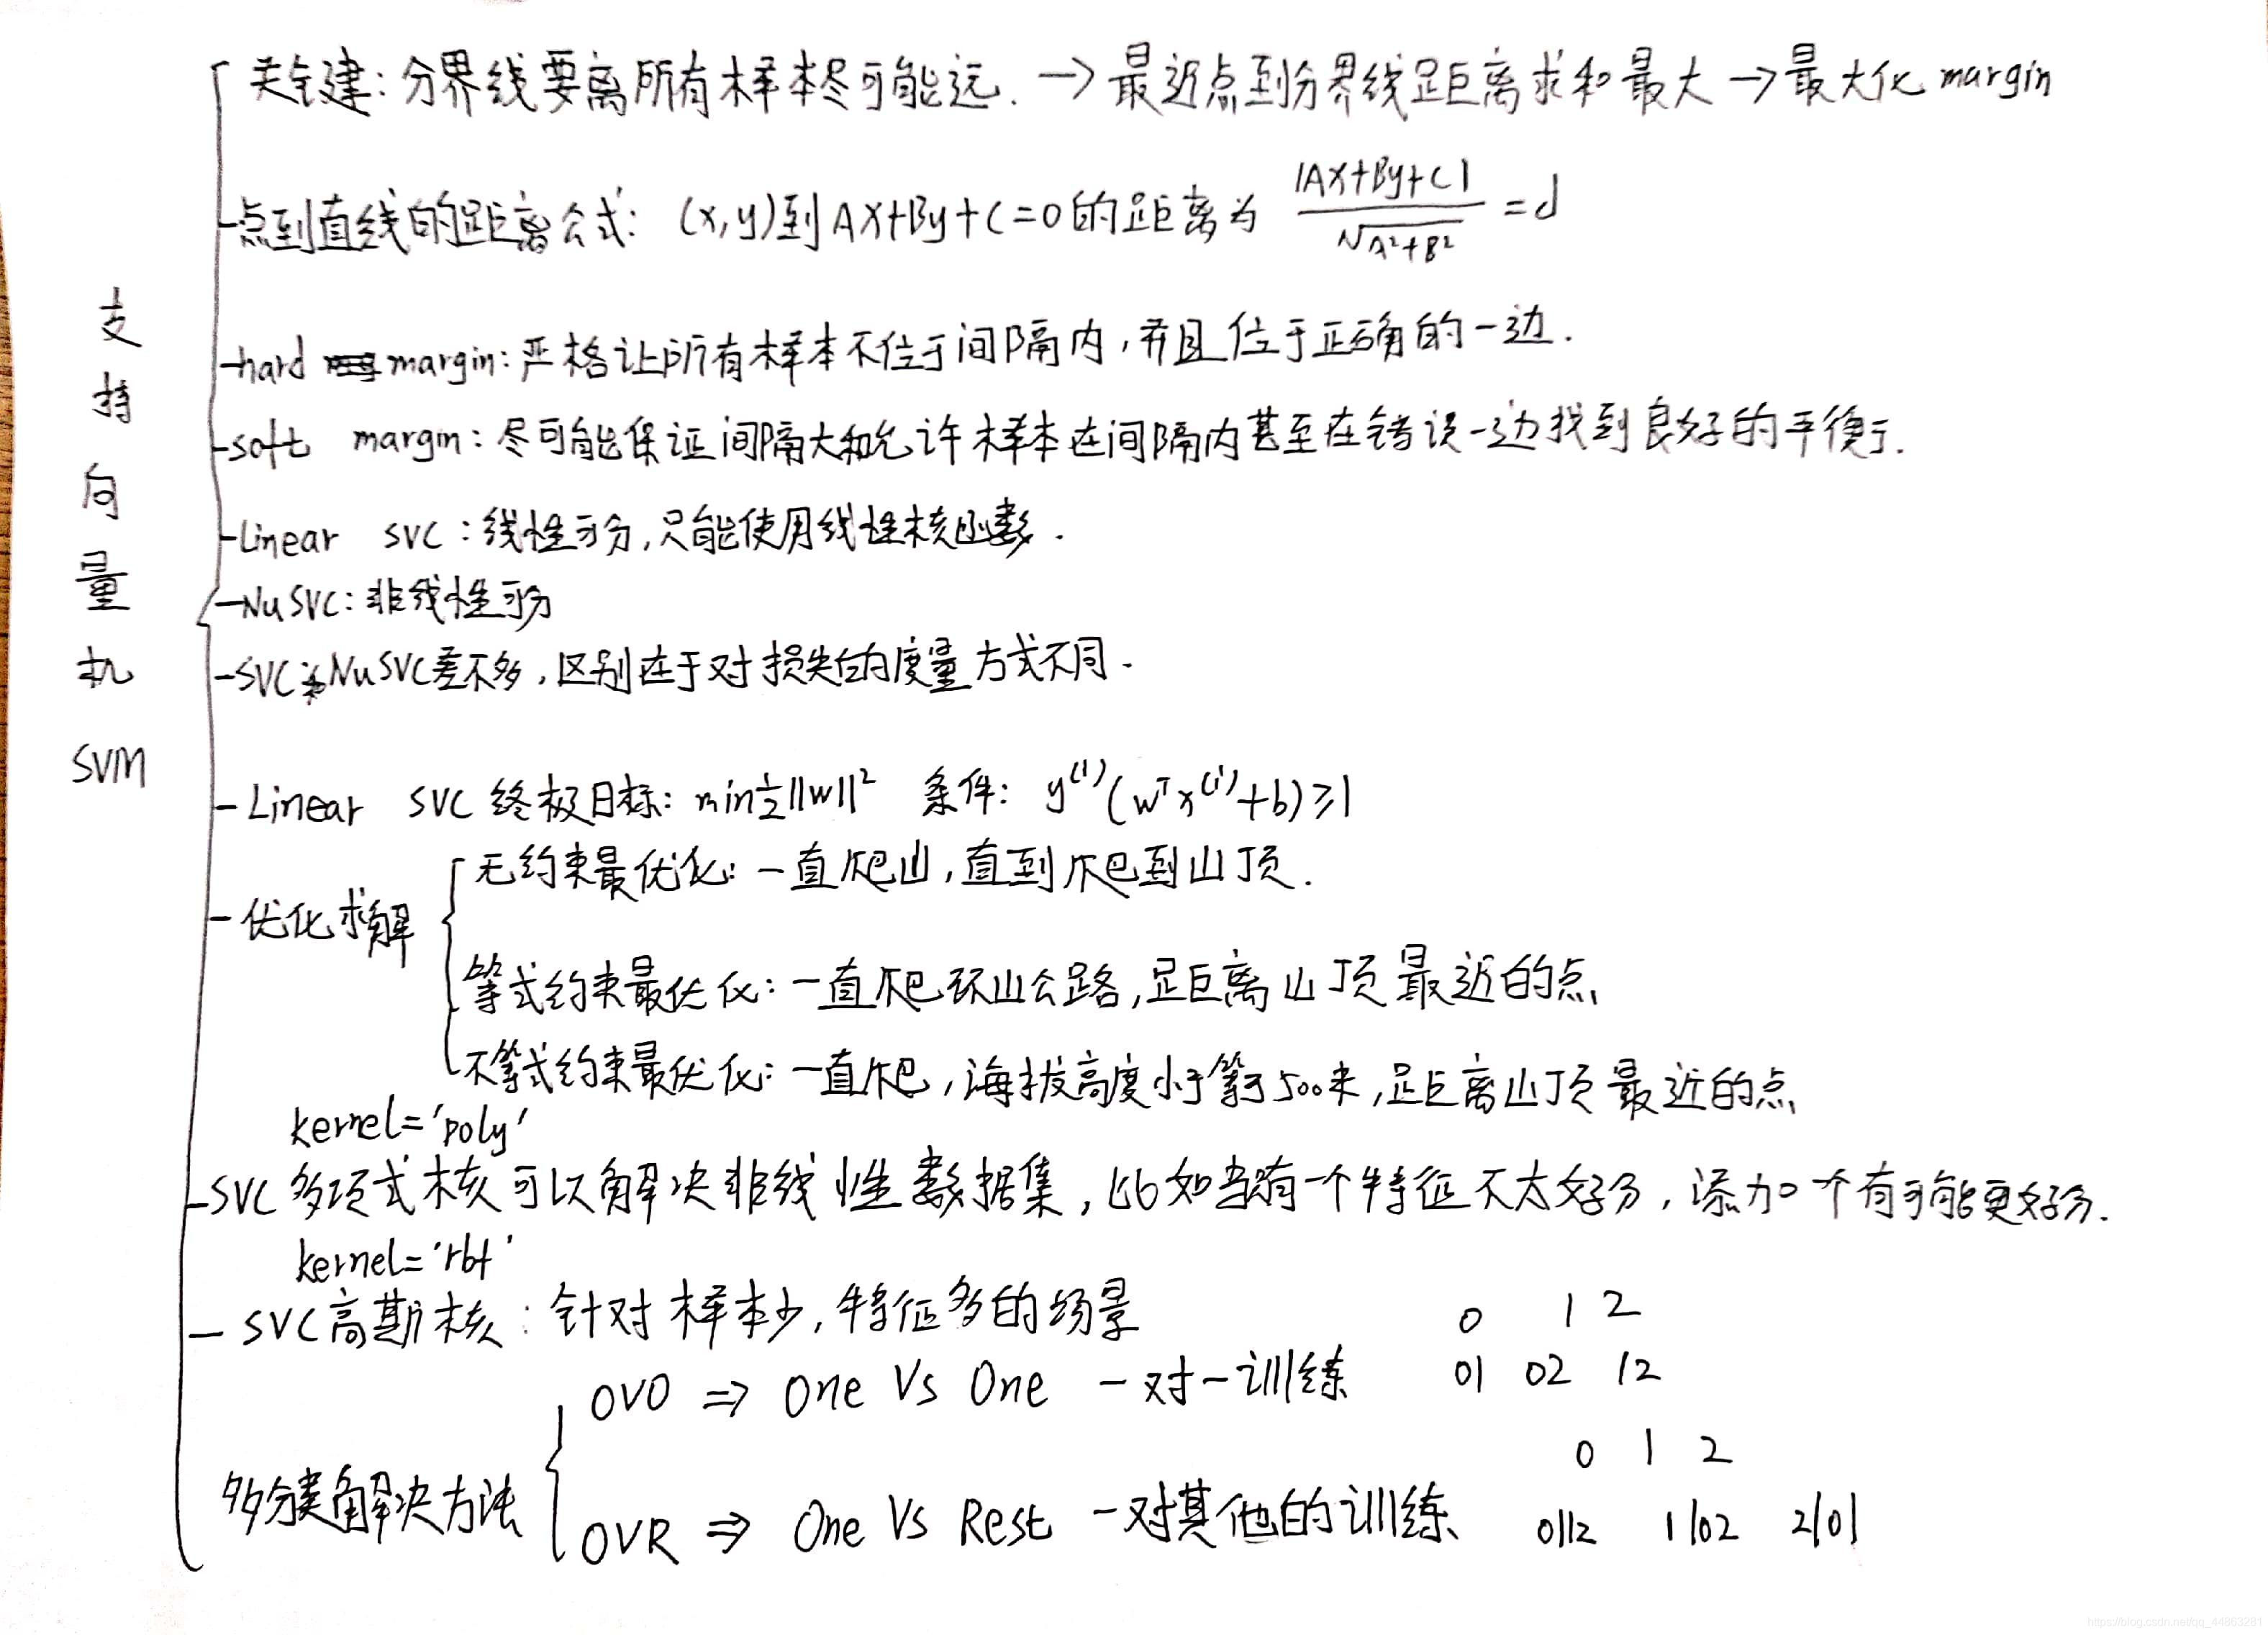 支持向量机 SVM
关键建:分界线要离所有样本尽可能远. → 最近点到分界线距离求和最大 → 最大化 margin
点到直线的距离公式: (x,y)到Ax+By+C=0的距离为 |Ax+By+C| / √A²+B² = d
hard margin:严格让所有样本不位于间隔内,并且位于正确的一边.
soft margin:尽可能保证间隔大和允许样本在间隔内甚至在错误一边找到良好的平衡.
Linear SVC:线性可分,只能使用线性核函数.
NuSVC:非线性可分
SVC和NuSVC差不多,区别在于对损失的度量方式不同.
Linear SVC 终极目标: min½||w||² 条件: y⁽ⁱ⁾(wᵀx⁽ⁱ⁾+b)≥1
优化求解
无约束最优化:一直爬山,直到爬到山顶.
等式约束最优化:一直爬环山公路,距离山顶最近的点
不等式约束最优化:一直爬,海拔高度小于等于500米,距离山顶最近的点
kernel='poly'
SVC 多项式核可以解决非线性数据集,比如当前一个特征不太好分,添加个有可能更好分.
kernel='rbf'
SVC高斯核:针对样本少,特征多的场景
多分类解决方法
OVO ⇒ One Vs One 一对一训练
0 1 2
01 02 12
OVR ⇒ One Vs Rest 一对其他的训练
0 1 2
0|12 1|02 2|01
https://blog.csdn.net/qq_44863281